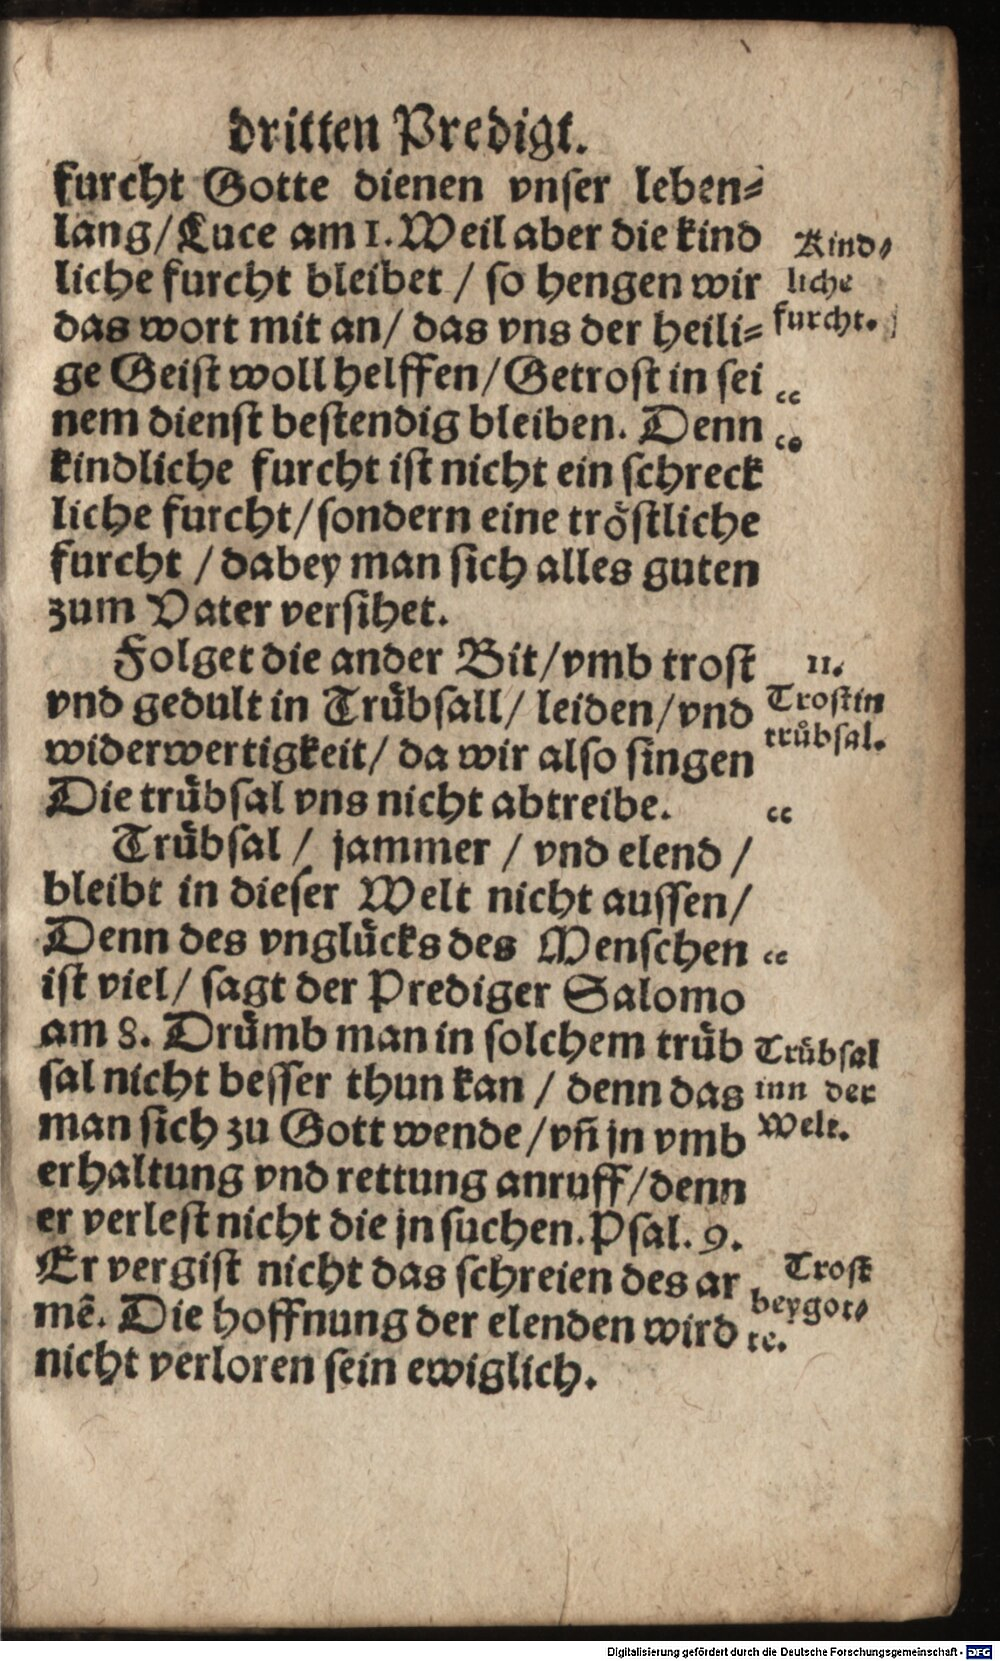 dritten Predigt.
furcht Gotte dienen vnser leben⸗
lang/ Luce am 1. Weil aber die kind
liche furcht bleibet / so hengen wir
das wort mit an/ das vns der heili⸗
ge Geist woll helffen/ Getrost in sei
nem dienst bestendig bleiben. Denn
kindliche furcht ist nicht ein schreck
liche furcht/ sondern eine tröstliche
furcht / dabey man sich alles guten
zum Vater versihet.
Kind⸗
liche
furcht.
“
“
Folget die ander Bit/ vmb trost
vnd gedult in Trübsall/ leiden/ vnd
widerwertigkeit/ da wir also singen
Die trübsal vns nicht abtreibe.
11.
Trost in
trübsal.
“
Trübsal / jammer / vnd elend /
bleibt in dieser Welt nicht aussen/
Denn des vnglücks des Menschen
ist viel/ sagt der Prediger Salomo
am 8. Drümb man in solchem trüb
sal nicht besser thun kan / denn das
man sich zu Gott wende/ vñ jn vmb
erhaltung vnd rettung anruff/ denn
er verlest nicht die jn suchen. Psal. 9.
Er vergist nicht das schreien des ar
mẽ. Die hoffnung der elenden wird
nicht verloren sein ewiglich.
“
Trübsal
inn der
Welt.
Trost
bey got⸗
te.
Digitalisierung gefördert durch die Deutsche Forschungsgemeinschaft - DFG